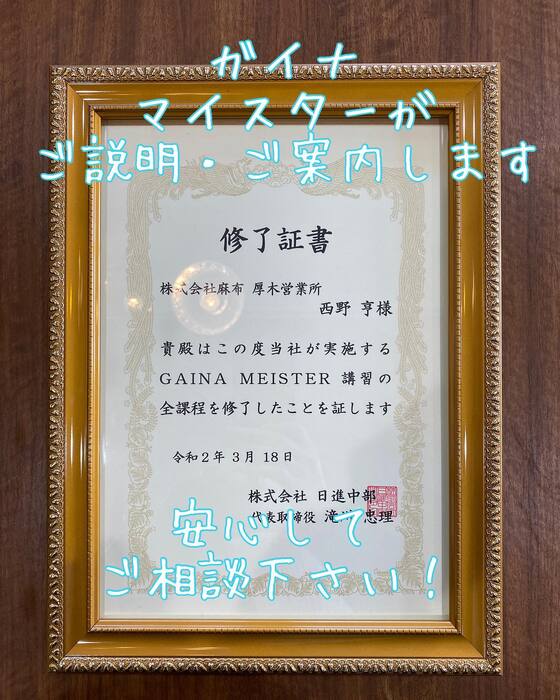 ガイナ
マイスターが
ご説明・ご案内します
修了証書
株式会社麻布 厚木営業所
西野 亨様
貴殿はこの度当社が実施する
GAINA MEISTER 講習の
全課程を修了したことを証します
令和2年 3月 18日
株式会社 日進中部
代表取締役 滝川 忠理
安心して
ご相談下さい!